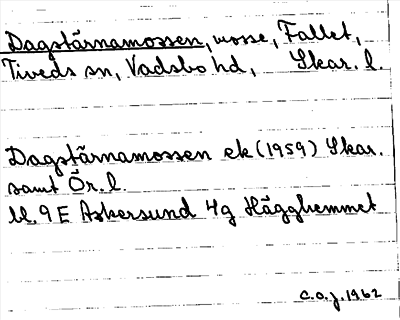 Dagstärnamossen, mosse, Fallet,
Tiveds sn, Vadsbo hd, Skar. l.
Dagstärnamossen ek (1959) Skar.
samt Ör. l.
bl. 9E Askersund 4g Hägghemmet
C.O.J. 1962